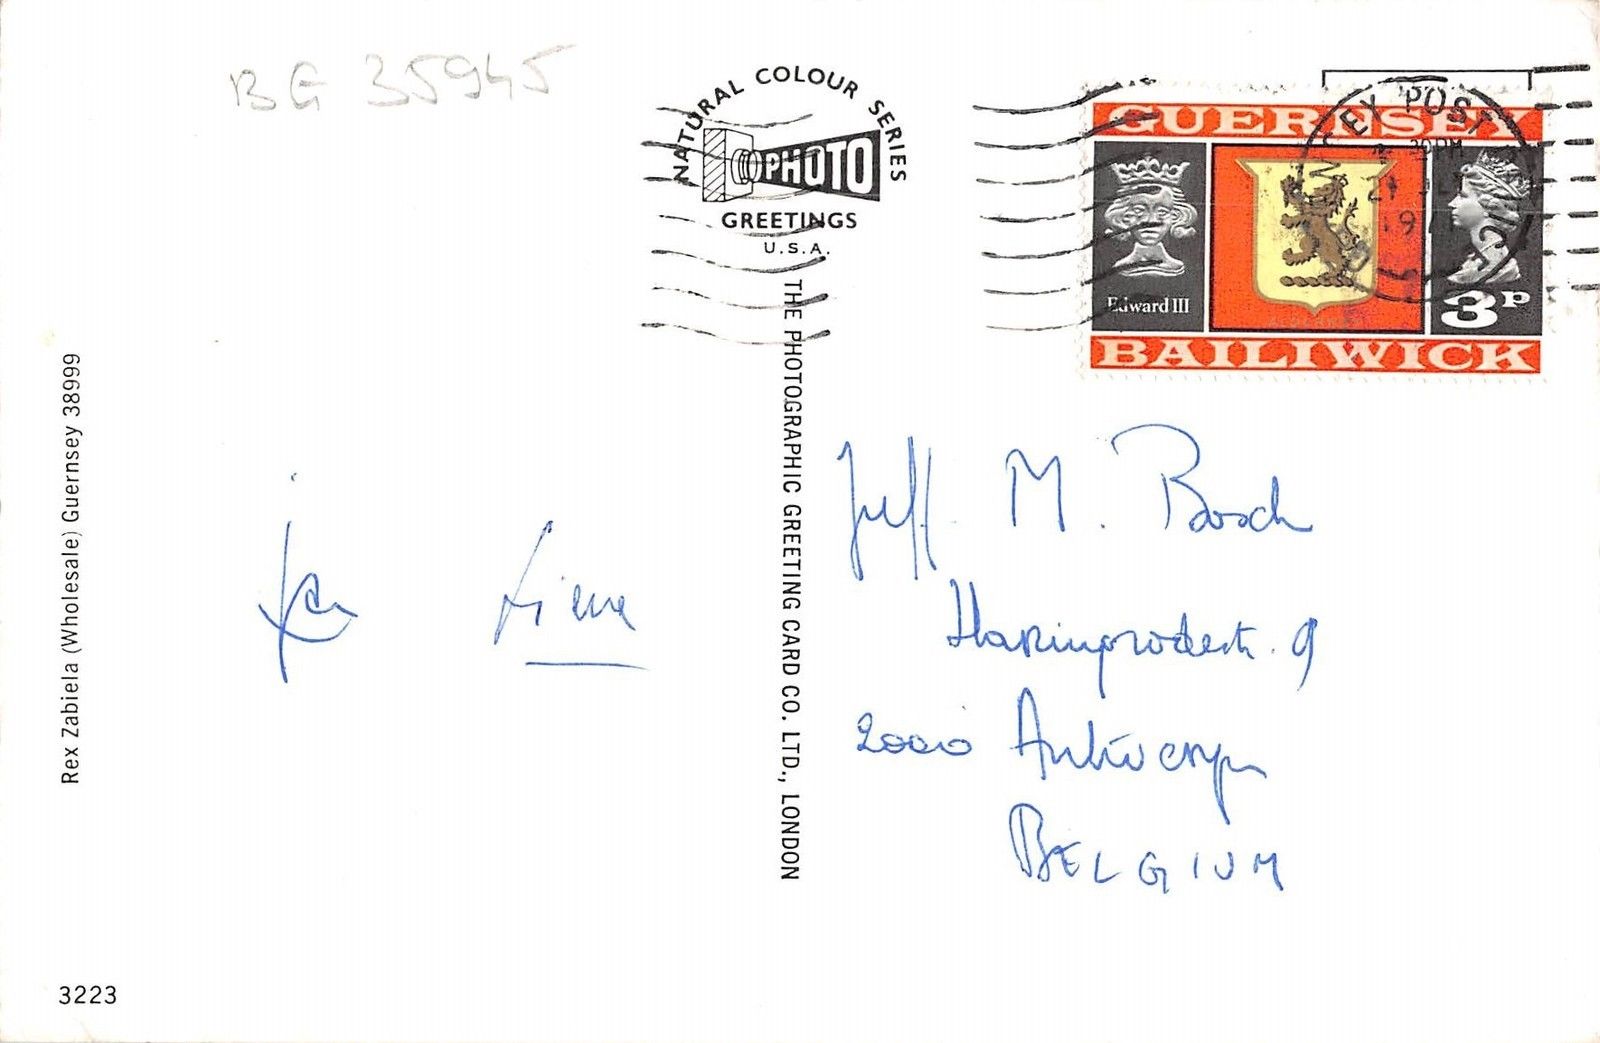 BG 35945
NATURAL COLOUR SERIES
PHOTO
GREETINGS
U.S.A.
THE PHOTOGRAPHIC GREETING CARD CO. LTD., LONDON
Rex Zabiela (Wholesale) Guernsey 38999
3223
GUERNSEY
Edward III
3P
BAILIWICK
POST
Jeff. M. Bosch
9
2000 Antwerpen
BELGIUM